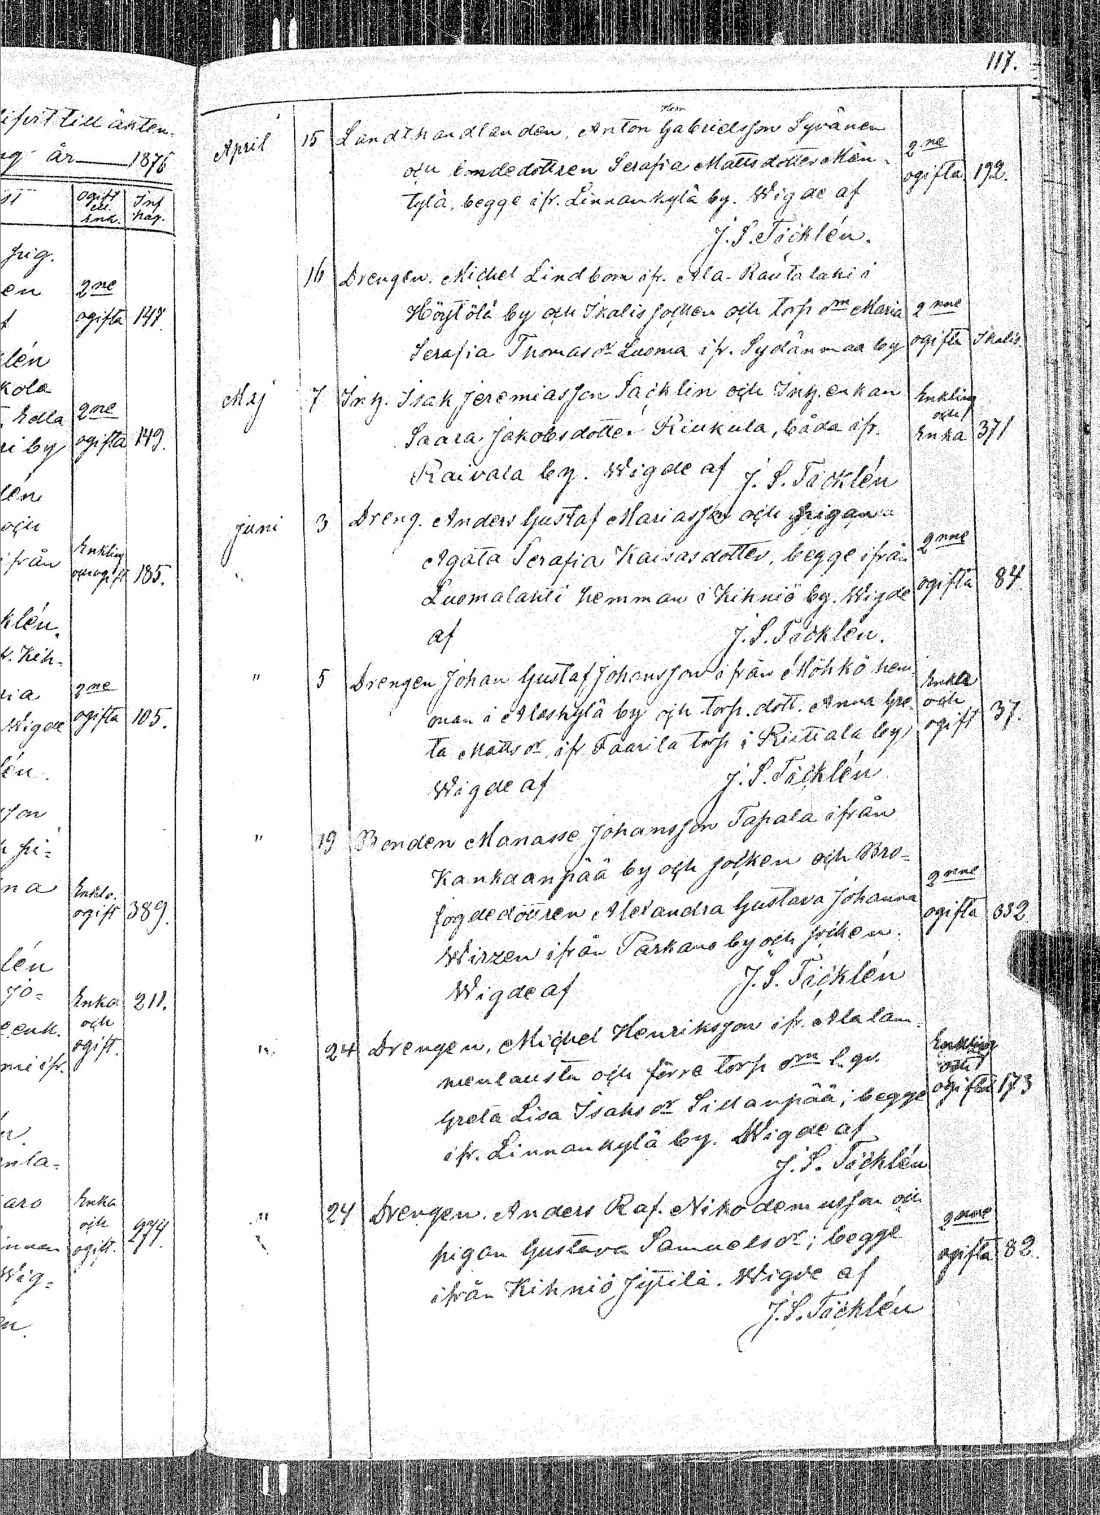 117.
ifvit till äkten-
ng år 1876
ogift ell. Enk.
Inf pag.
pig.
en 2ne
ogifta 147.
klén
kola
Edla 2ne
ri by ogifta 149.
lén
och
ifrån Enkling och ogift 185.
klén.
Kih-
ria 2ne
Wigde ogifta 105.
lén.
sson
h pi-
na Enkl o. ogift 389.
lén
Jo- Enka 211.
e enk. och
mi ifr. ogift.
enla-
aro Enka
och
innan ogift. 274.
Wig-
én.
April 15 Landthandlanden, Anton Herm Gabrielsson Syvänen
2ne
och bondedottren Serafia Mattsdotter Män-
ogifta 192.
tylä, begge ifr. Linnankylä by. Wigde af
J. S. Täcklén.
16 Drengen. Michel Lindbom ifr. Ala-Rautalahti i
Höytölä by och Ikalis socken och torp dr Maria
2nne
Serafia Thomasdr Luoma ifr. Sydänmaa by
ogifta Ikalis.
Maj 7 Inh. Isak Jeremiasson Säcklin och Inh. enkan
Enkling och
Saara Jakobsdotter Kiukula, båda ifr.
Enka 371
Raivala by. Wigde af J. S. Täcklén
Juni 3 Dreng. Anders Gustaf Mariasson och pigan
2nne
Agata Serafia Kaisasdotter, begge ifrån
ogifta 84.
Luomalahti hemman i Kihniö by. Wigde
af J. S. Täcklén.
" 5 Drengen Johan Gustaf Johansson ifrån Möhkö hem-
Enkla
man i Alaskylä by och torp. dott. Anna Gre-
och
ogift 37.
ta Mattsdr ifr. Faarila torp i Riitiala by,
Wigde af J. S. Täcklén
" 19 Bonden Manasse Johansson Tapala ifrån
Kankaanpää by och socken och Bro-
2nne
fogdedottren Alexandra Gustava Johanna
ogifta 332
Wirzen ifrån Parkano by och socken.
Wigde af J. S. Täcklén
" 24 Drengen, Michel Henriksson ifr. Alalam-
Enkling
menlausta och förre torp dr
och
ogifta 173
Greta Lisa Isaksdr Sillanpää, begge
ifr. Linnankylä by. Wigde af
J. S. Täcklén
" 24 Drengen. Anders Raf. Nikodemusson och
2nne
pigan Gustava Samuelsdr; begge
ogifta 82.
ifrån Kihniö Jyltilä. Wigde af
J. S. Täcklén